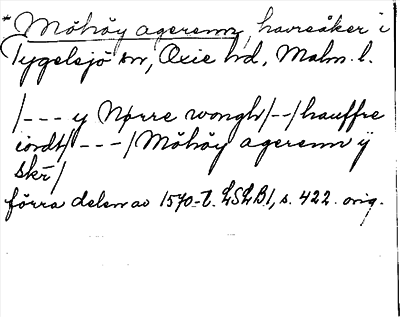 * Möhöy agerenn, havreåker i
Tygelsjö sn, Oxie hd, Malm. l.
/--- y Nørre wongh/--/hauffre
iordt/---/Möhöy agerenn ÿ
skr̄/
förra delen av 1570-t. LSLB 1, s. 422. orig.